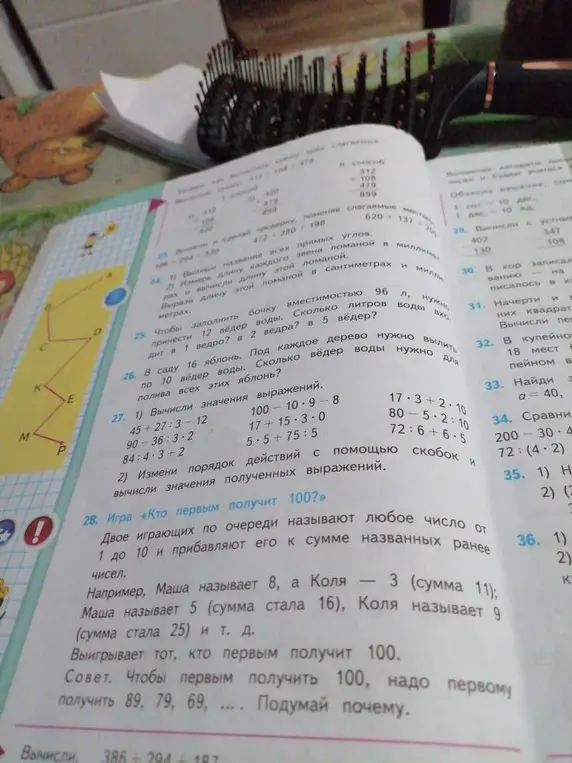 312
+ 108
479
899
23. Вычисли и сделай проверку, поменяв слагаемые
24. 1) Выпиши названия всех прямых углов.
2) Измерь длину каждого звена ломаной в миллимет-
рах и вычисли длину этой ломаной.
Вырази длину этой ломаной в сантиметрах и милли-
метрах.
25. Чтобы заполнить бочку вместимостью 96 л, нужно
принести 12 вёдер воды. Сколько литров воды вхо-
дит в 1 ведро? в 2 ведра? в 5 вёдер?
26. В саду 16 яблонь. Под каждое дерево нужно вылить
по 10 вёдер воды. Сколько вёдер воды нужно для
полива всех этих яблонь?
27. 1) Вычисли значения выражений.
45 + 27 : 3 − 12 100 − 10 · 9 − 8 17 · 3 + 2 · 10
90 − 36 : 3 · 2 17 + 15 · 3 · 0 80 − 5 · 2 : 10
84 : 4 · 3 + 2 5 · 5 + 75 : 5 72 : 6 + 6 · 5
2) Измени порядок действий с помощью скобок и
вычисли значения полученных выражений.
28. Игра «Кто первым получит 100?»
Двое играющих по очереди называют любое число от
1 до 10 и прибавляют его к сумме названных ранее
чисел.
Например, Маша называет 8, а Коля — 3 (сумма 11);
Маша называет 5 (сумма стала 16), Коля называет 9
(сумма стала 25) и т. д.
Выигрывает тот, кто первым получит 100.
Совет. Чтобы первым получить 100, надо первому
получить 89, 79, 69, ... . Подумай почему.
Вычисли.
A
B
C
D
K
E
M
P
1 сот. = 10 дес.
1 дес. = 10 ед.
29. Вычисли с устным
407 347
130 108
30. В хор записал
31. Начерти и
них квадрат
Вычисли пе
32. В купейно
18 мест
пейном в
33. Найди
a = 40,
34. Сравни
200 − 30 · 4
72 : (4 · 2)
35. 1) Н
2)
36. 1)
2)